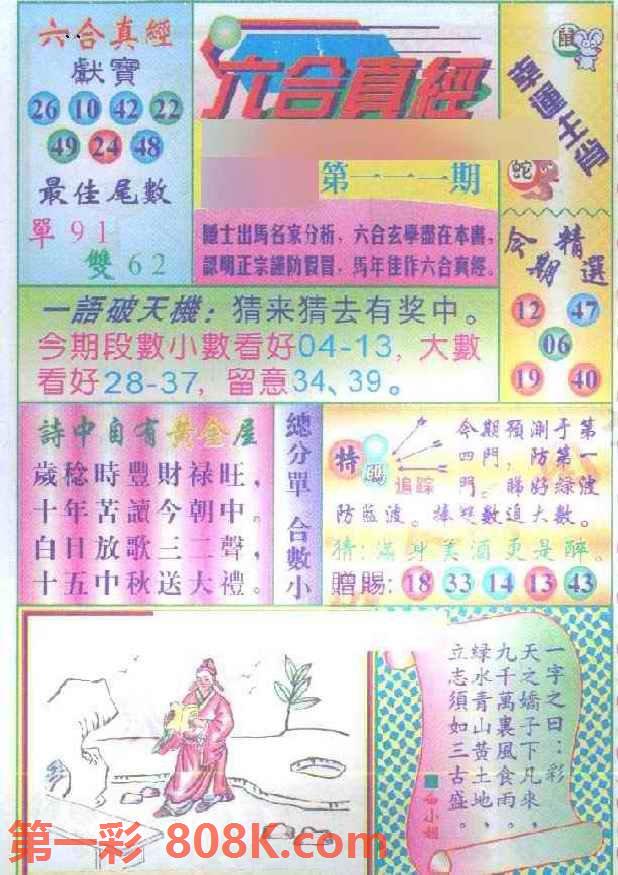 六合真經
獻寶
26 10 42 22
49 24 48
最佳尾數
單91
雙62
六合真經
第一一一期
隱士出馬名家分析，六合玄學盡在本書，
認明正宗謹防假冒，馬年佳作六合真經。
鼠
幸運生肖
蛇
今期精選
12 47
06
19 40
一語破天機：猜来猜去有奖中。
今期段數小數看好04-13，大數
看好28-37，留意34、39。
詩中自有黃金屋
歲稔時豐財禄旺，
十年苦讀今朝中。
白日放歌三二聲，
十五中秋送大禮。
總分單
合數小
特碼
追踪
今期預測于第
四門，防第一
門。睇好緑波
防藍波。捧雙數追大數。
猜：滿身美酒更是醉。
贈賜：18 33 14 13 43
一字之曰：彩
天之嬌子下凡來，
九千萬裏風食雨，
绿水青山黄土地，
立志須如三古盛。
小姐
第一彩 808K.com